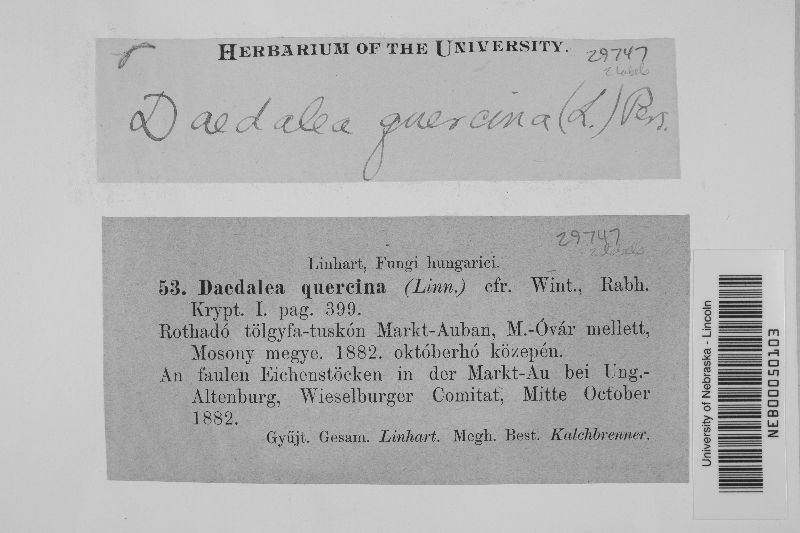 HERBARIUM OF THE UNIVERSITY.
29747
2 labels
Daedalea quercina (L.) Pers.
29747
2 labels
Linhart, Fungi hungarici.
53. Daedalea quercina (Linn.) cfr. Wint., Rabh.
Krypt. I. pag. 399.
Rothadó tölgyfa-tuskón Markt-Auban, M.-Óvár mellett,
Mosony megye. 1882. októberhó közepén.
An faulen Eichenstöcken in der Markt-Au bei Ung.-
Altenburg, Wieselburger Comitat, Mitte October
1882.
Gyűjt. Gesam. Linhart. Megh. Best. Kalchbrenner.
University of Nebraska - Lincoln
NEB00050103